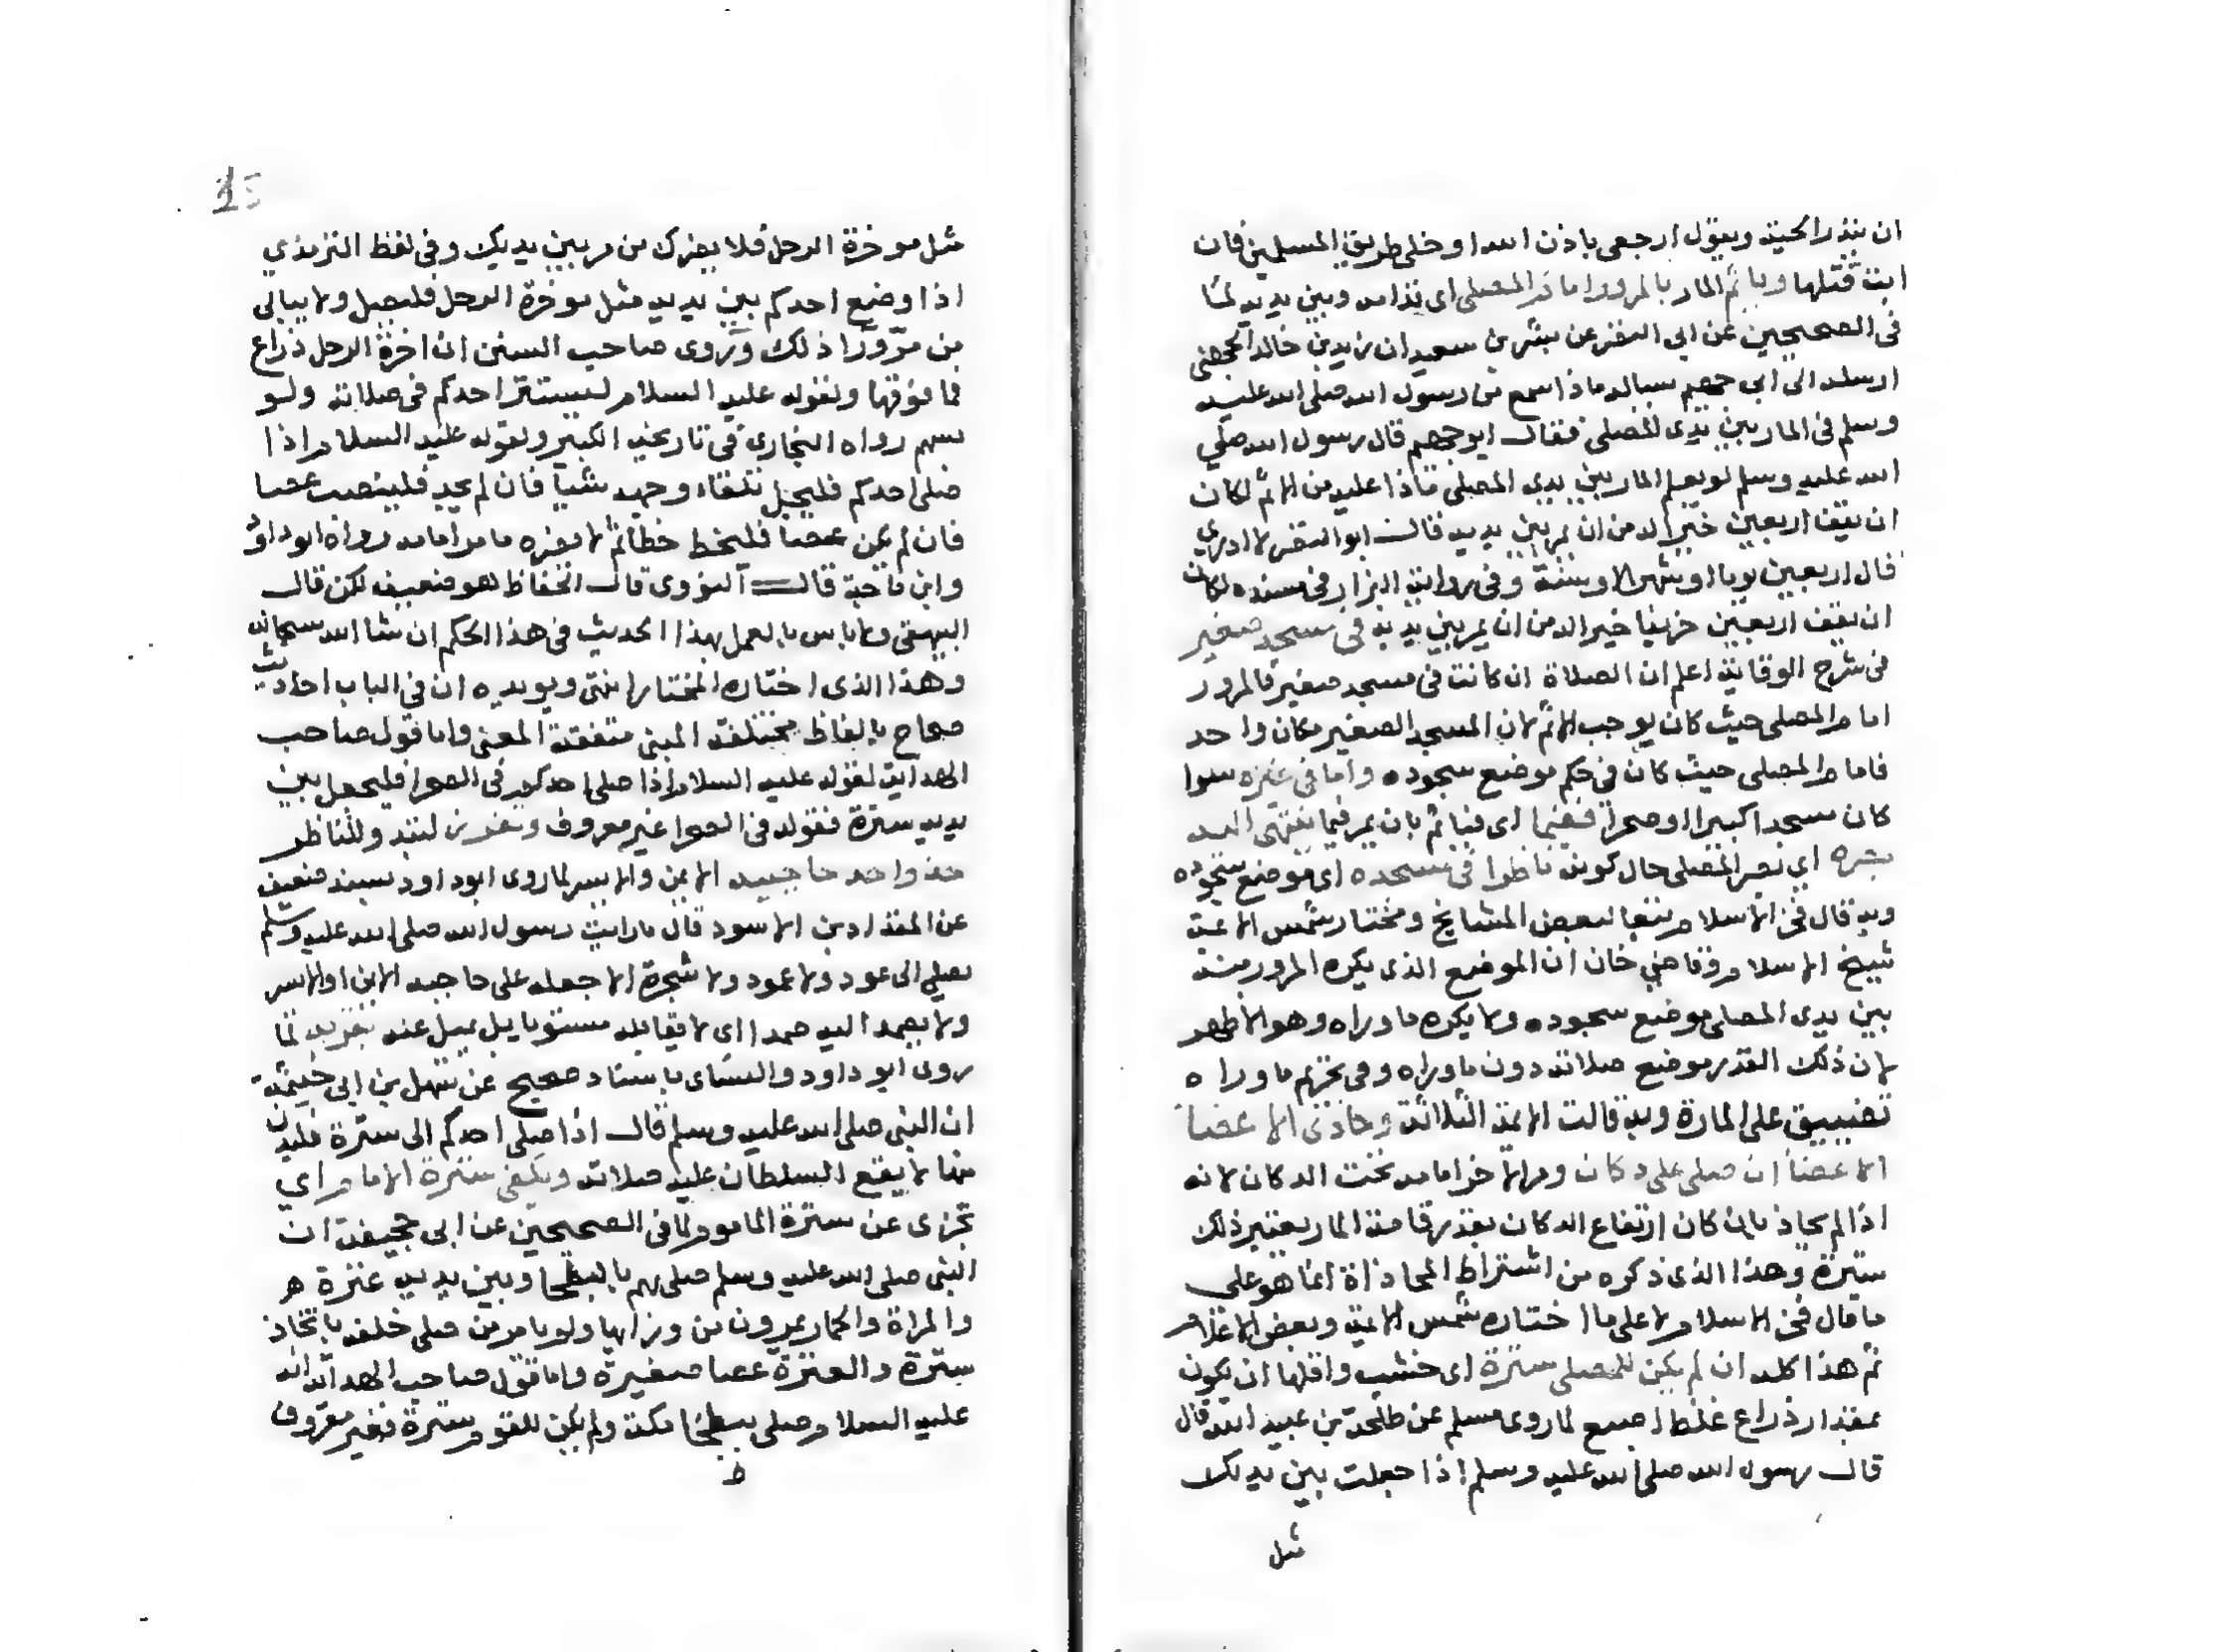 ان ينذر الحية ويقول ارجعي باذن الله او خلي طريق المسلمين فان
ابت قتلها وياثم المار بالمرور امام المصلي اي قدامه وبين يديه لما
في الصحيحين عن ابي النضر عن بشر بن سعيد ان زيد بن خالد الجهني
ارسله الى ابي جهيم يساله ماذا سمع من رسول الله صلى الله عليه
وسلم في المار بين يدي المصلي فقال ابو جهيم قال رسول الله صلى
الله عليه وسلم لو يعلم المار بين يدي المصلي ماذا عليه من الاثم لكان
ان يقف اربعين خيرا له من ان يمر بين يديه قال ابو النضر لا ادري
قال اربعين يوما او شهرا او سنة وفي رواية البزار في مسنده لكان
ان يقف اربعين خريفا خير اله من ان يمر بين يديه في مسجد صغير
في شرح الوقاية اعلم ان الصلاة ان كانت في مسجد صغير فالمرور
امام المصلي حيث كان يوجب الاثم لان المسجد الصغير مكان واحد
فامام المصلي حيث كان في حكم موضع سجوده واما في غيره سوا
كان مسجدا كبيرا او صحرا ففيما اي فياثم بان يمر فيما ينتهي اليه
بصره اي بصر المصلي حال كونه ناظرا في مسجده اي موضع سجوده
وبه قال فخر الاسلام تبعا لبعض المشايخ ومختار شمس الايمة
شيخ الاسلام وقاضي خان ان الموضع الذي يكره المرور منه
بين يدي المصلي موضع سجوده ولا يكره ما وراه وهو الاظهر
لان ذلك القدر موضع صلاته دون ما وراه وفي تحريم ما وراه
تضييق على المارة وبه قالت الايمة الثلاثة وحاذى الاعضا
الاعضا ان صلى على دكان ومر الآخر امامه تحت الدكان لانه
اذا لم يحاذ بان كان ارتفاع الدكان بقدر قامة المار يعتبر ذلك
سترة وهذا الذي ذكره من اشتراط المحاذاة انما هو على
ما قال فخر الاسلام لا على ما اختاره شمس الايمة وبعض الاعلام
ثم هذا كله ان لم يكن للمصلي سترة اي خشب واقلها ان يكون
بمقدار ذراع غلظ اصبع لما روى مسلم عن طلحة بن عبيد الله قال
قال رسول الله صلى الله عليه وسلم اذا جعلت بين يديك
مثل
25
مثل موخرة الرحل فلا يضرك من مر بين يديك وفي لفظ الترمذي
اذا وضع احدكم بين يديه مثل موخرة الرحل فليصل ولا يبالي
من مر ورا ذلك وروى صاحب السنن ان اخرة الرحل ذراع
فما فوقها ولقوله عليه السلام ليستتر احدكم في صلاته ولو
بسهم رواه البخاري في تاريخه الكبير ولقوله عليه السلام اذا
صلى احدكم فليجعل تلقاء وجهه شيا فان لم يجد فلينصب عصا
فان لم يكن عصا فليخط خطا ثم لا يضره ما مر امامه رواه ابو داود
وابن ماجة قال النووي قال الحفاظ هو ضعيف لكن قال
البيهقي ولا باس بالعمل بهذا الحديث في هذا الحكم ان شا الله سبحانه
وهذا الذي اختاره المختار انتهى ويويده ان في الباب احاديث
صحاح بالفاظ مختلفة المبنى متفقة المعنى واما قول صاحب
الهداية لقوله عليه السلام اذا صلى احدكم في الصحرا فليجعل بين
يديه سترة فقوله في الصحرا غير معروف
حذو احد حاجبيه الايمن والايسر لما روى ابو داود بسند ضعيف
عن المقداد بن الاسود قال ما رايت رسول الله صلى الله عليه وسلم
يصلي الى عود ولا عمود ولا شجرة الا جعله على حاجبه الايمن او الايسر
ولا يصمد اليه صمدا اي لا يقابله مستويا بل يميل عنه لما
روى ابو داود والنسائ باسناد صحيح عن سهل بن ابي حيثمة
ان النبي صلى الله عليه وسلم قال اذا صلى احدكم الى سترة فليدن
منها لا يقطع الشيطان عليه صلاته ويكفي سترة الامام اي
تجزي عن سترة الماموم لما في الصحيحين عن ابي جحيفة ان
النبي صلى الله عليه وسلم صلى بهم بالبطحا وبين يديه عنزة
والمراة والحمار يمرون من ورائها ولم يامر من صلى خلفه باتخاذ
سترة والعنزة عصا صغيرة واما قول صاحب الهداية انه
عليه السلام صلى ببطحا مكة ولم يكن للقوم سترة فغير معروف